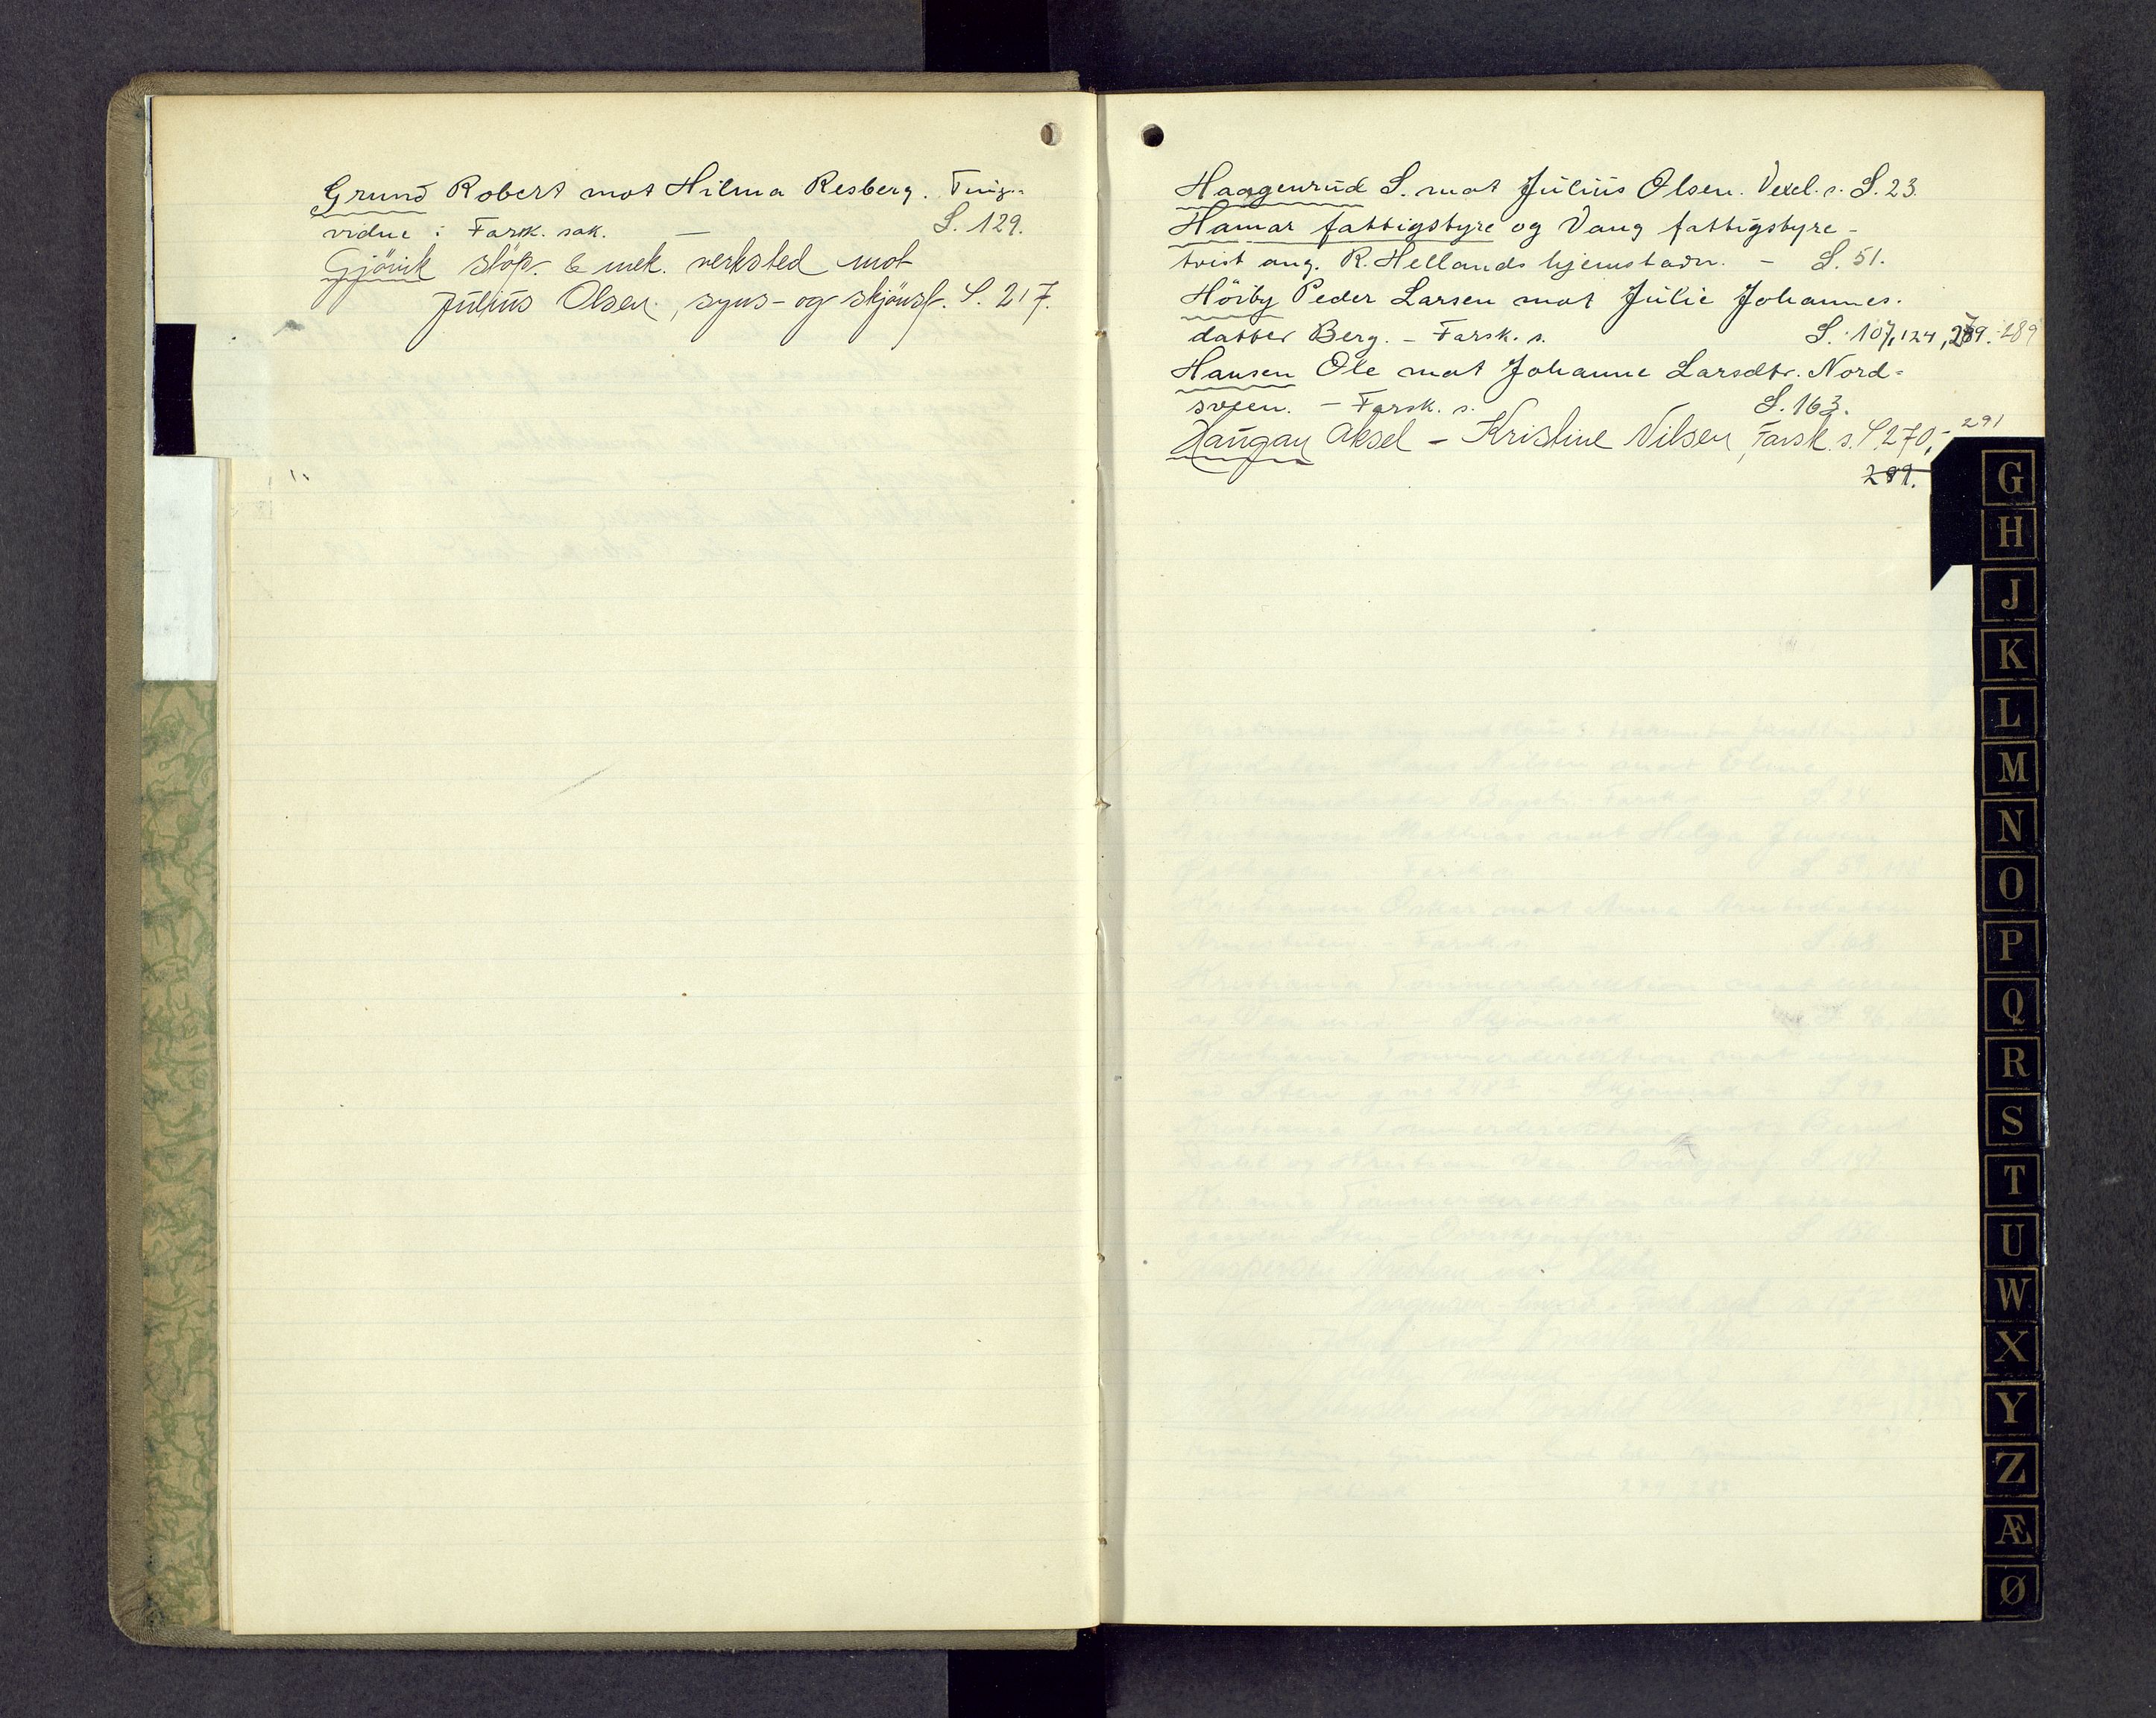 Grund Robert mot Hilma Resberg. Ting-
vidne i Farsk. sak. — S. 129.
Gjövik stöp. & mek. verksted mot
Julius Olsen, syns- og skjönsf. S. 217.
Haagenrud S. mot Julius Olsen. Vexel. s. S. 23.
Hamar fattigstyre og Vang fattigstyre -
tvist ang. R. Hellands hjemstavn. - S. 51.
Hörby Peder Larsen mot Julie Johannes.
datter Berg. - Farsk. s. S. 107, 124, 289
Hansen Ole mot Johanne Larsdtr. Nord-
sveen. - Farsk. s. S. 163.
Haugan Aksel - Kristine Nilsen, Farsk. s. S. 270, - 291
289.
G
H
J
K
L
M
N
O
P
Q
R
S
T
U
W
X
Y
Z
Æ
Ø